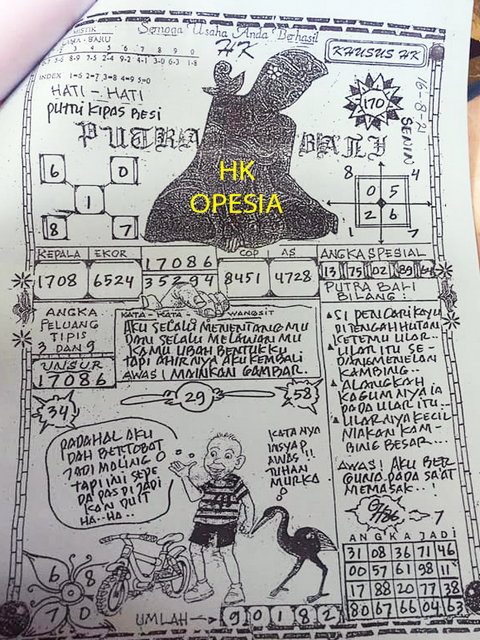 Semoga Usaha Anda Berhasil
MISTIK
HK
KHUSUS HK
INDEX 1=6 2=7 3=8 4=9 5=0
HATI - HATI
PUTRI KIPAS BESI
PUTRA BALI
170
16-8-21
SENIN
HK
OPESIA
6 0
1
8 7
8 4
0 5
2 6
KEPALA EKOR 17086 COP AS ANGKA SPESIAL
1708 6524 35294 8451 4728 13 75 02 89 64
PUTRA BALI
BILANG :
ANGKA
PELUANG
TIPIS
3 DAN 9
UNSUR
17086
KATA - KATA - WANGSIT
AKU SELALU MENENTANG MU
DAN SELALU MELAWAN MU
KAMU UBAH BENTUK KU
TAPI AHIRNYA AKU KEMBALI
AWAS! MAINKAN GAMBAR.
SI PENCARI KAYU
DITENGAH HUTAN
KETEMU ULAR..
ULAR ITU SE-
DANG MENELAN
KAMBING..
ALANGKAH
KAGUMNYA IA
PADA ULAR ITU..
ULARNYA KECIL
MAKAN KAM-
BING BESAR...
AWAS! AKU BER
GUNA PADA SAAT
MEMASAK...!
34
29
58
PADAHAL AKU
DAH BERTOBAT
JADI MALING
TAPI INI SEPE
DA PAS DI JADI
KAN DUIT
HA..HA..
KATANYA
INSYAP
AWAS!!
TUHAN
MURKA
7
ANGKA JADI
31 08 36 71 46
00 57 61 98 11
17 88 20 77 38
80 67 66 04 63
6 8
7 0
UMLAH → 9 0 1 8 2